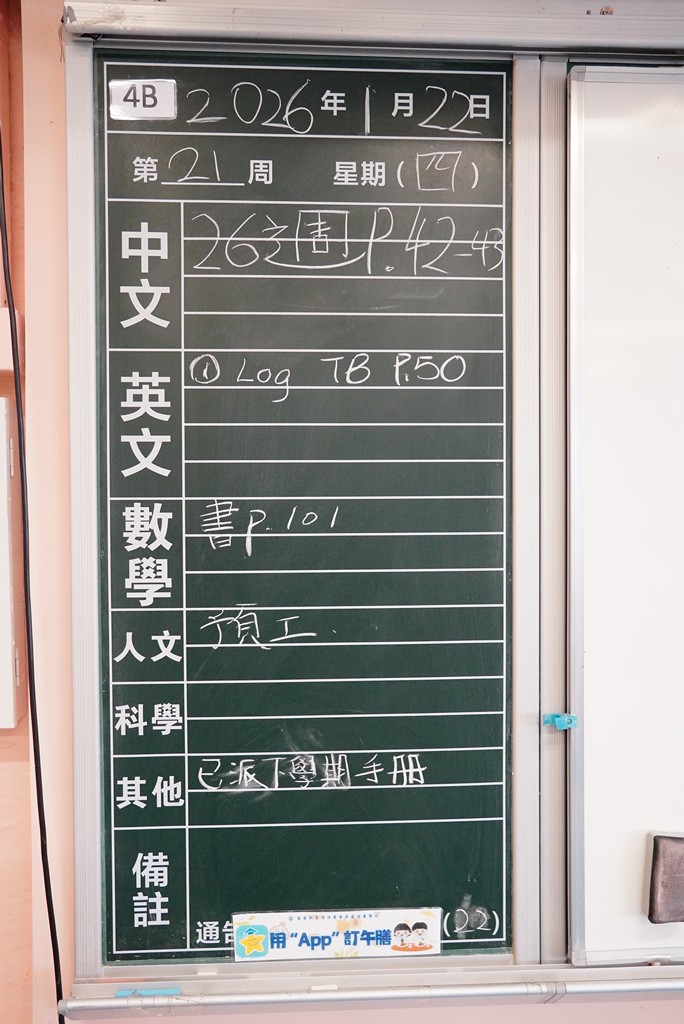 4B 2026年1月22日
第21周 星期(四)
中文 P.42-43
英文 ① Log TB P.50
數學 書p.101
人文 預工.
科學
其他 已派下學期手冊
備註
用 "App" 訂午膳
(22)